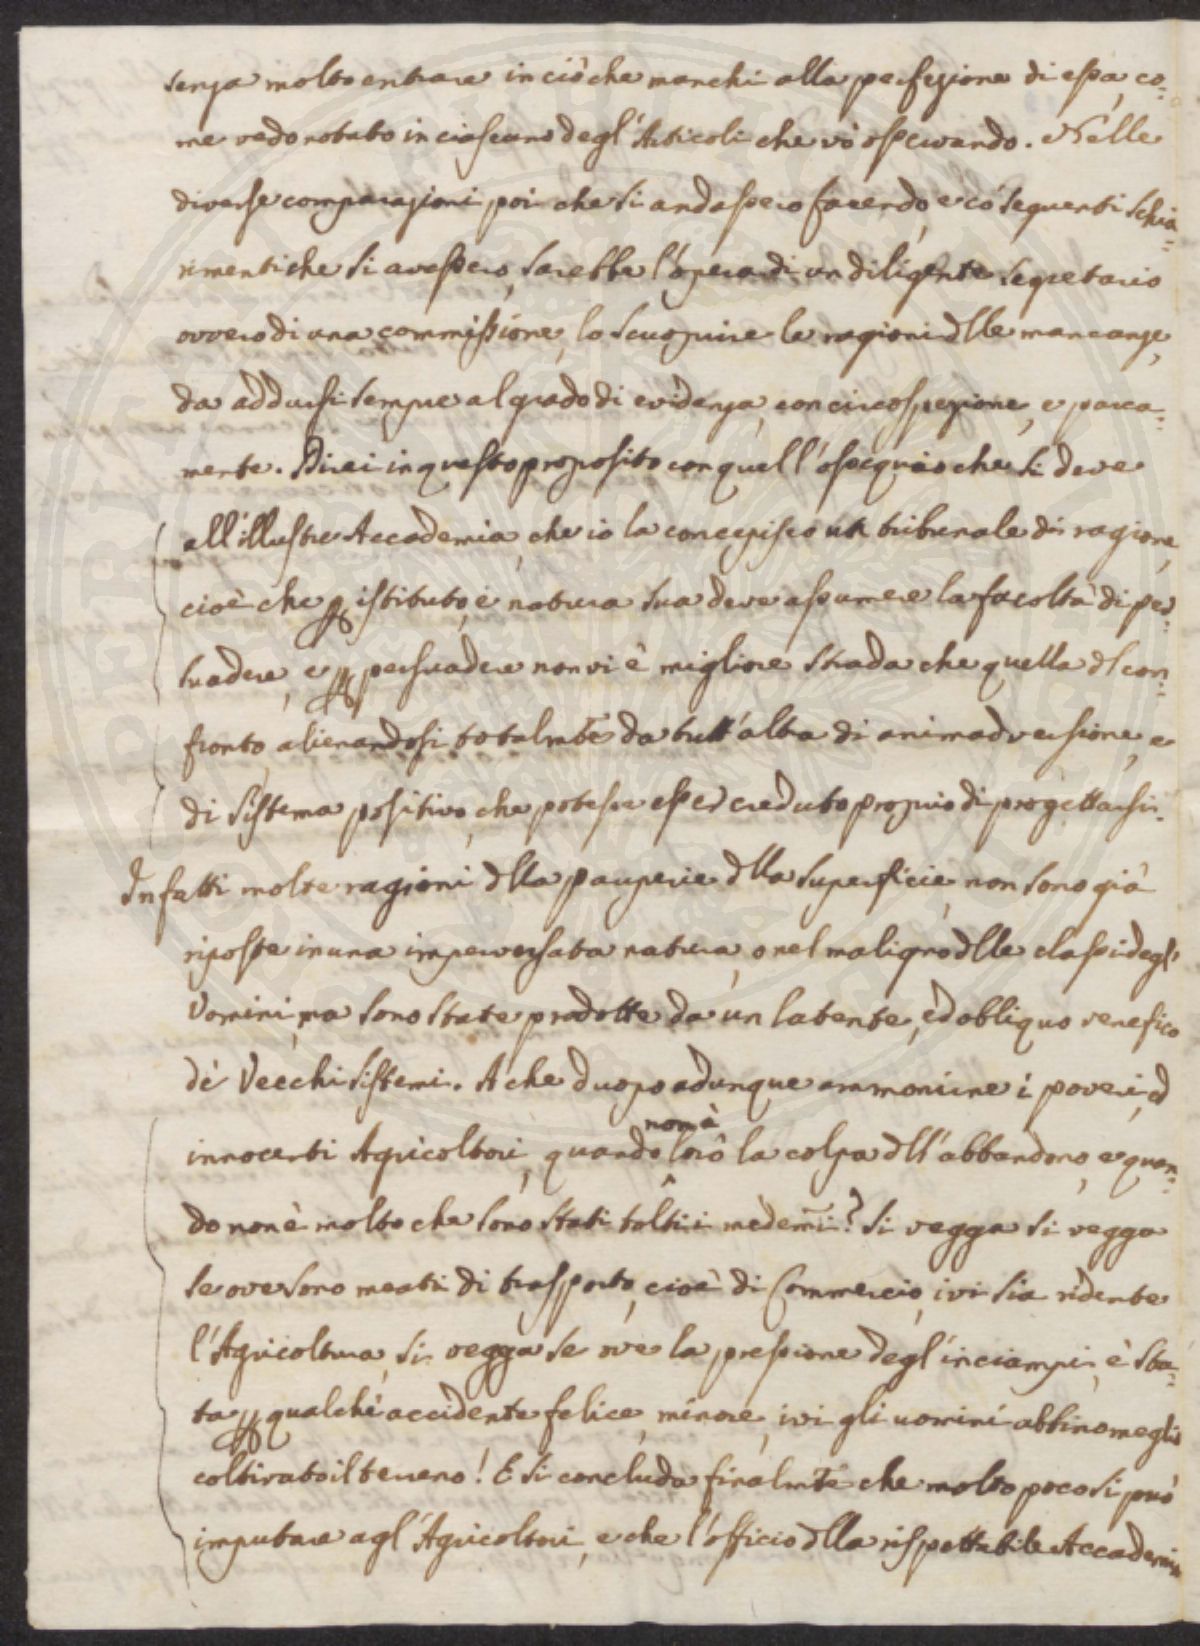 senza molto entrare in ciò che manchi alla perfezione di essa, co=
me vedo notato in ciascuno degl'Articoli che vò osservando. Nelle
diverse comparazioni poi che si andassero facendo, e có seguenti schia=
rimenti che si avessero, sarebbe l'opera di un diligente segretario
ovvero di una commissione, lo scuoprire le ragioni dlle mancanze,
da addursi sempre al grado di evidenza, con circospezione, e parca=
mente. Direi in questo proposito con quell'ossequio che si deve
all'illustre Accademia, che io la concepisco un tribunale di ragione,
cioè che p istituto, e natura sua deve assumere la facoltà di per=
suadere, e p persuadere non vi è migliore strada che quella dl con=
fronto, alienandosi totalmte da tutt'altra di animadversione, e
di sistema positivo, che potesse esser creduto proprio di progettarsi.
Infatti molte ragioni dlla pauperie dlla superficie, non sono già
riposte in una imperversata natura, o nel maligno dlle classi degl'
Uomini, ma sono state prodotte da un latente, ed obliquo venefico
dè Vecchi sistemi. A che d'uopo adunque ammonirne i poveri, ed
innocenti Agricoltori, quando non è loro la colpa dll'abbandono, e quan=
do non è molto che sono stati tolti i medemi? Si vegga si vegga
se ove sono meati di trasporto, cioè di Commercio, ivi sia ridente
l'Agricoltura, si vegga se ove la pressione degl'inciampi, è sta=
ta p qualche accidente felice, minore, ivi gli uomini abbino meglio
coltivato il terreno! E si concluda finalmte che molto poco si può
imputare agl'Agricoltori, e che l'officio dlla rispettabile Accademia